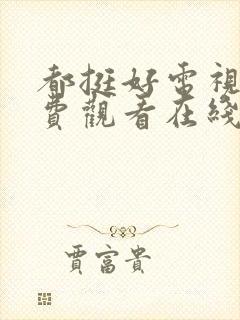 都挺好電視
費觀看在綫
賈富貴